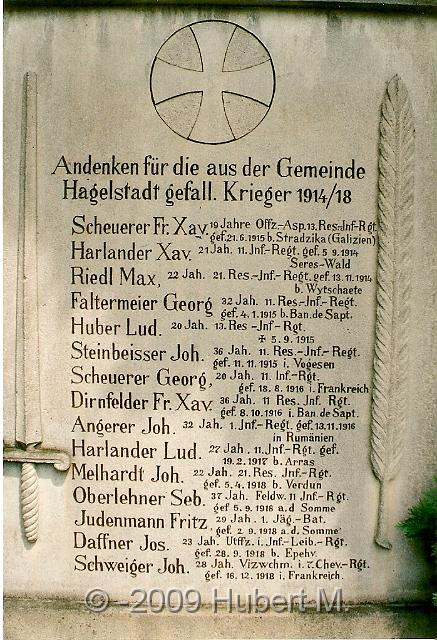 Andenken für die aus der Gemeinde
Hagelstadt gefall. Krieger 1914/18
Scheuerer Fr. Xav. 19 Jahre Offz.-Asp. 13. Res.-Inf-Rgt.
gef. 21. 6. 1915 b. Stradzika (Galizien)
Harlander Xav. 21 Jah. 11. Inf.-Regt. gef. 5 9. 1914
Seres-Wald
Riedl Max, 22 Jah. 21. Res.-Inf.-Regt. gef. 13. 11. 1914
b. Wytschaete
Faltermeier Georg 32 Jah. 11. Res.-Inf.-Regt.
gef. 4. 1. 1915 b. Ban. de Sapt.
Huber Lud. 20 Jah. 13. Res -Inf.- Rgt.
✠ 5. 9. 1915
Steinbeisser Joh. 36 Jah. 11. Res.-Inf.-Regt.
gef. 11. 11. 1915 i. Vogesen
Scheuerer Georg, 20 Jah. 11. Inf.-Rgt.
gef. 18. 8. 1916 i. Frankreich
Dirnfelder Fr. Xav. 36 Jah. 11 Res. Inf. Rgt.
gef. 8. 10. 1916 i. Ban. de Sapt.
Angerer Joh. 32 Jah. 1. Inf.-Regt. gef. 13. 11. 1916
in Rumänien
Harlander Lud. 27 Jah. 11. Inf.-Rgt. gef.
19. 2. 1917 b. Arras
Melhardt Joh. 22 Jah. 21. Res. Inf.-Rgt.
gef. 5. 4. 1918 b. Verdun
Oberlehner Seb. 37 Jah. Feldw. 11 Inf.-Rgt.
gef 5. 9. 1918 a. d Somme
Judenmann Fritz 29 Jah. 1. Jäg.-Bat.
gef. 2. 9. 1918 a. d. Somme
Daffner Jos. 23 Jah. Utffz. i. Inf.-Leib.-Rgt.
gef. 28. 9. 1918 b. Epehv.
Schweiger Joh. 28 Jah. Vizwchm. i. 7. Chev.-Rgt.
gef. 16. 12. 1918 i. Frankreich.
© -2009 Hubert M.